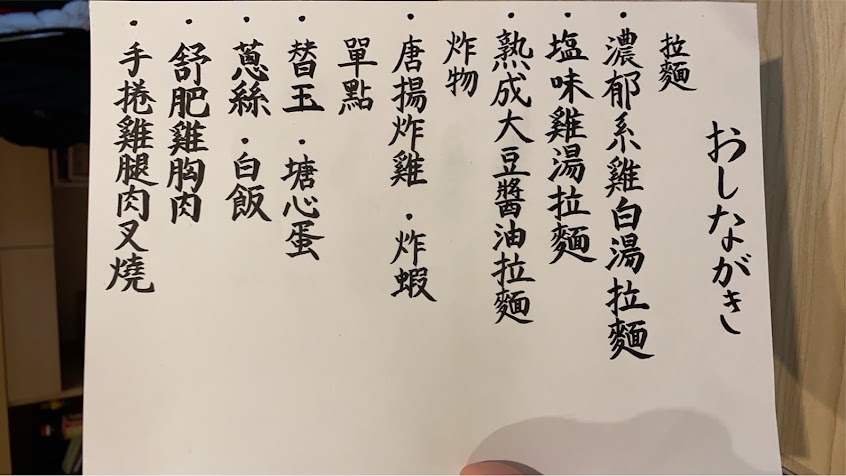 おしながき
拉麵
・濃郁系雞白湯拉麵
・塩味雞湯拉麵
・熟成大豆醬油拉麵
炸物
・唐揚炸雞・炸蝦
單點
・替玉・塘心蛋
・蔥絲・白飯
・舒肥雞胸肉
・手捲雞腿肉叉燒